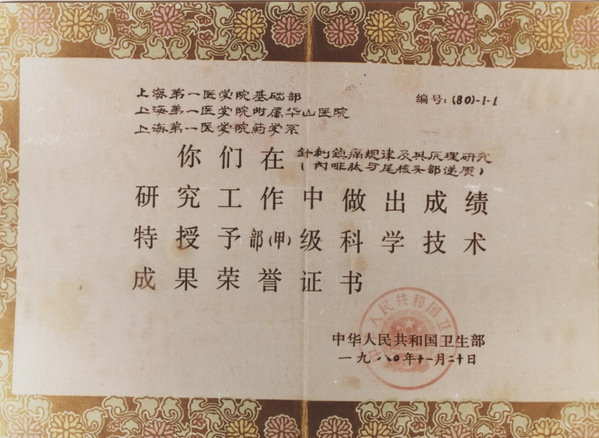 上海第一医学院基础部
编号:(80)-1-1
上海第一医学院附属华山医院
上海第一医学院药学系
你们在 针刺镇痛规律及其原理研究
(内啡肽与尾核头部递质)
研究工作中做出成绩
特授予部(甲)级科学技术
成果荣誉证书
中华人民共和国卫生部
一九八〇年十一月二十日
中华人民共和国卫生部